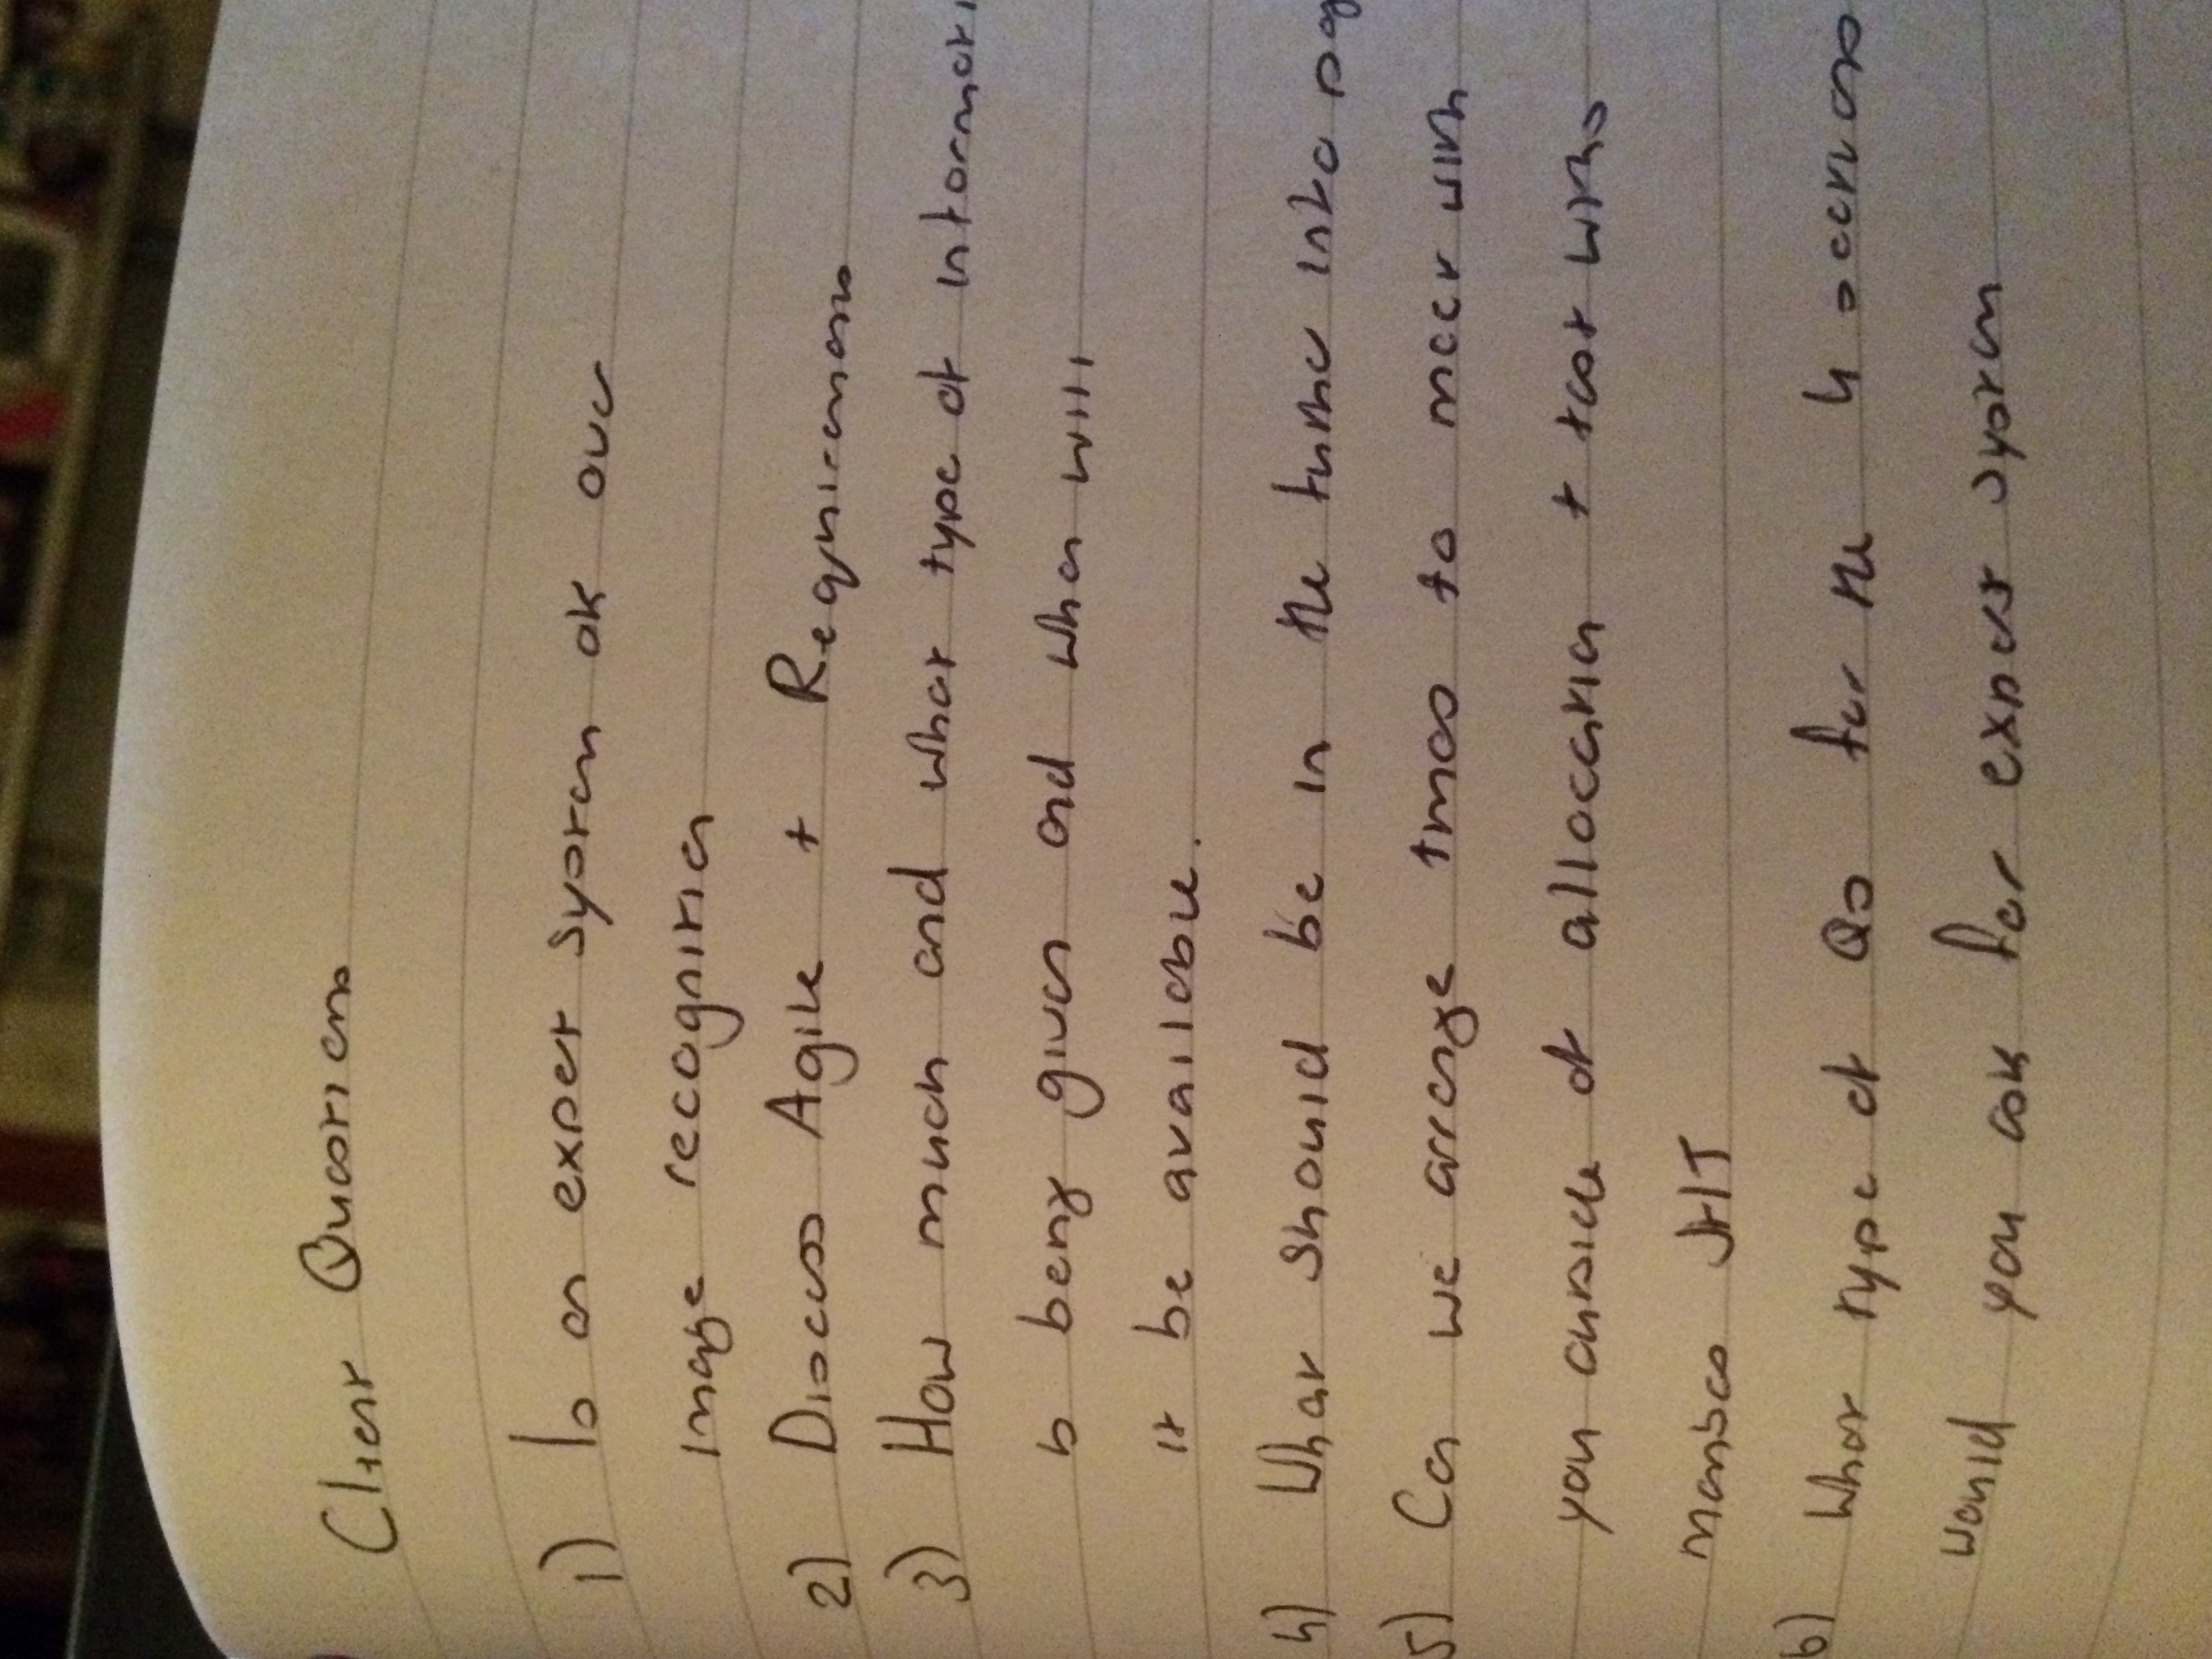 Client Questions
1) Is an expert system ok over
image recognition
2) Discuss Agile + Requirements
3) How much and what type of informati
is being given and when will
it be available.
4) What should be in the further info pag
5) Can we arrange times to meet with
you outside of allocation + test with
members JHIT
6) What type of Qs for the 4 sections
would you ask for expert system